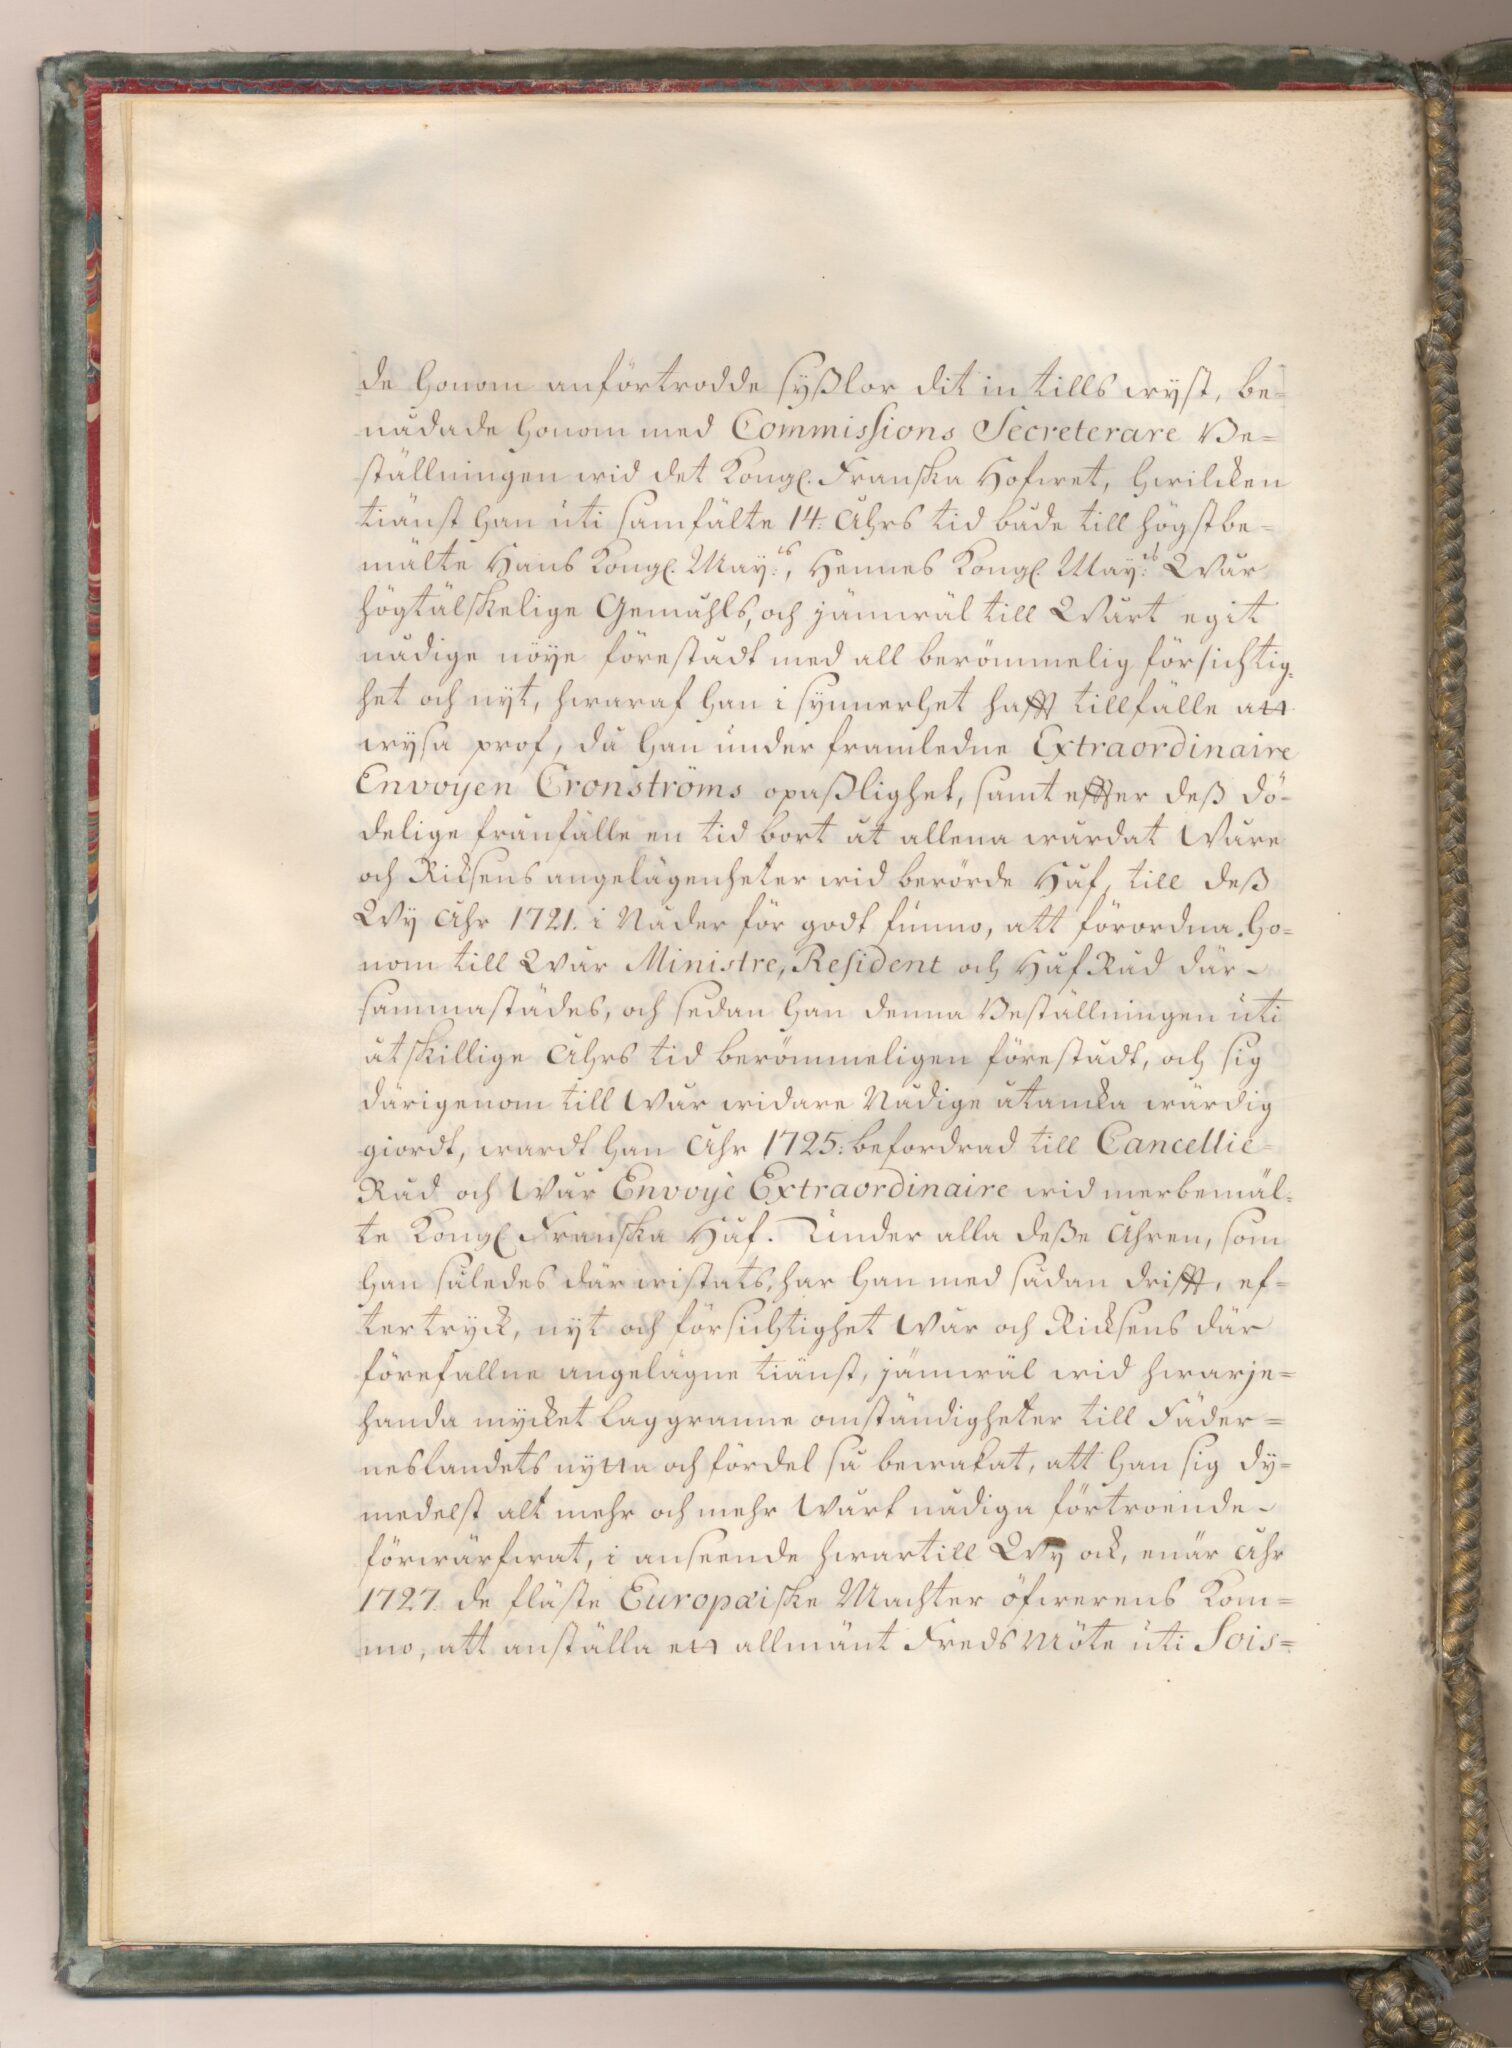 de honom anförtrodde sysßlor dit in tills wyst, be-
nådade honom med Commissions Secreterare Be-
ställningen wid det Kongl. Franska Hofwet, hwilcken
tiänst han uti samfälte 14. Åhrs tid både till högstbe-
mälte Hans Kongl. May:ts, Hennes Kongl. May:ts Wår
högtälskelige Gemåhls, och jämwäl till Wårt egit
nådige nöye förestådt med all berömmelig försichtig-
het och nyt, hwaraf han i synnerhet hafft tillfälle att
wysa prof, då han under framledne Extraordinaire
Envoyen Cronströms opaßlighet, samt effter deß dö-
delige frånfälle en tid bort åt allena wårdat Wåre
och Riksens angelägenheter wid berörde Håf, till deß
Wy Åhr 1721. i Nåder för godt funno, att förordna Ho-
nom till Wår Ministre, Resident och Håf Råd där-
sammastädes, och sedan han denna Beställningen uti
åtskillige Åhrs tid berömmeligen förestådt, och sig
därigenom till Wår widare Nådige åtancka wärdig
giordt, wardt han Åhr 1725. befordrad till Cancellie-
Råd och Wår Envoyé Extraordinaire wid merbemäl-
te Kongl Franska Håf. Under alla deße Åhren, som
han således där wistats, har han med sådan drifft, ef-
tertryck, nyt och försichtighet Wår och Ricksens där
förefallne angelägne tiänst, jämwäl wid hwarje-
handa mycket laggranne omständigheter till Fäder-
neslandets nytta och fördel så bewakat, att han sig dy-
medelst alt mehr och mehr Wårt nådiga förtroende
förwärfwat, i anseende hwartill Wy ock, enär Åhr
1727. de fläste Europæiske Machter öfwerens kom-
mo, att anställa ett allmänt Freds Möte uti Sois-